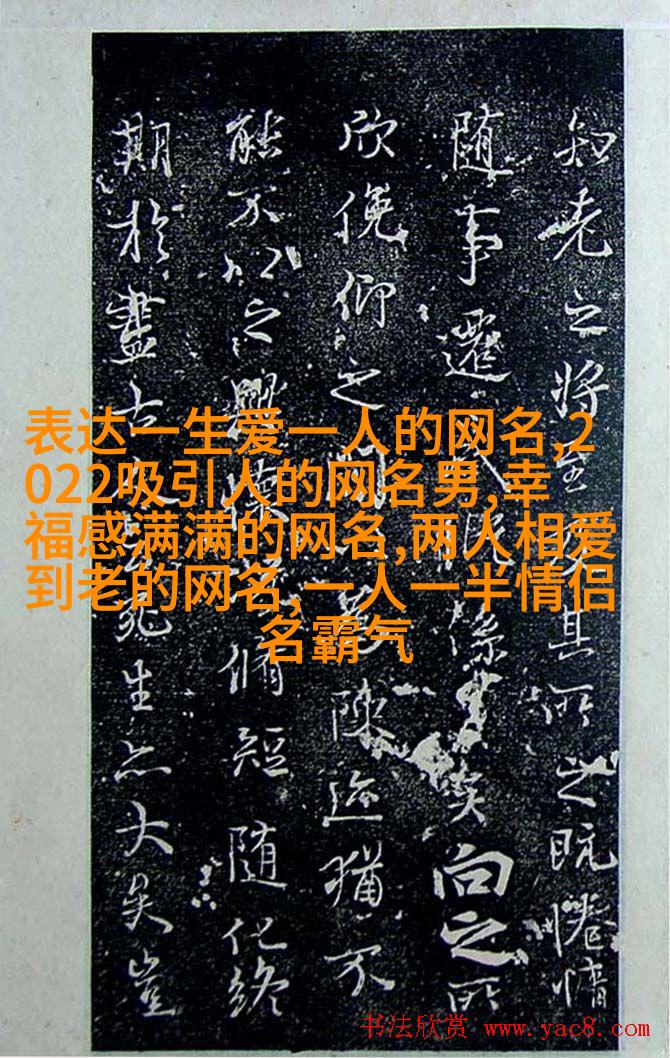 知老之將至其所之既惓情
随事遷係之矣向之所
欣俛仰之陳迹猶不
能不以之興脩短随化終
期於盡古死生亦大矣豈
表达一生爱一人的网名,2
022吸引人的网名男,幸
福感满满的网名,两人相爱
到老的网名,一人一半情侣
名霸气
书法欣赏 www.yac8.com